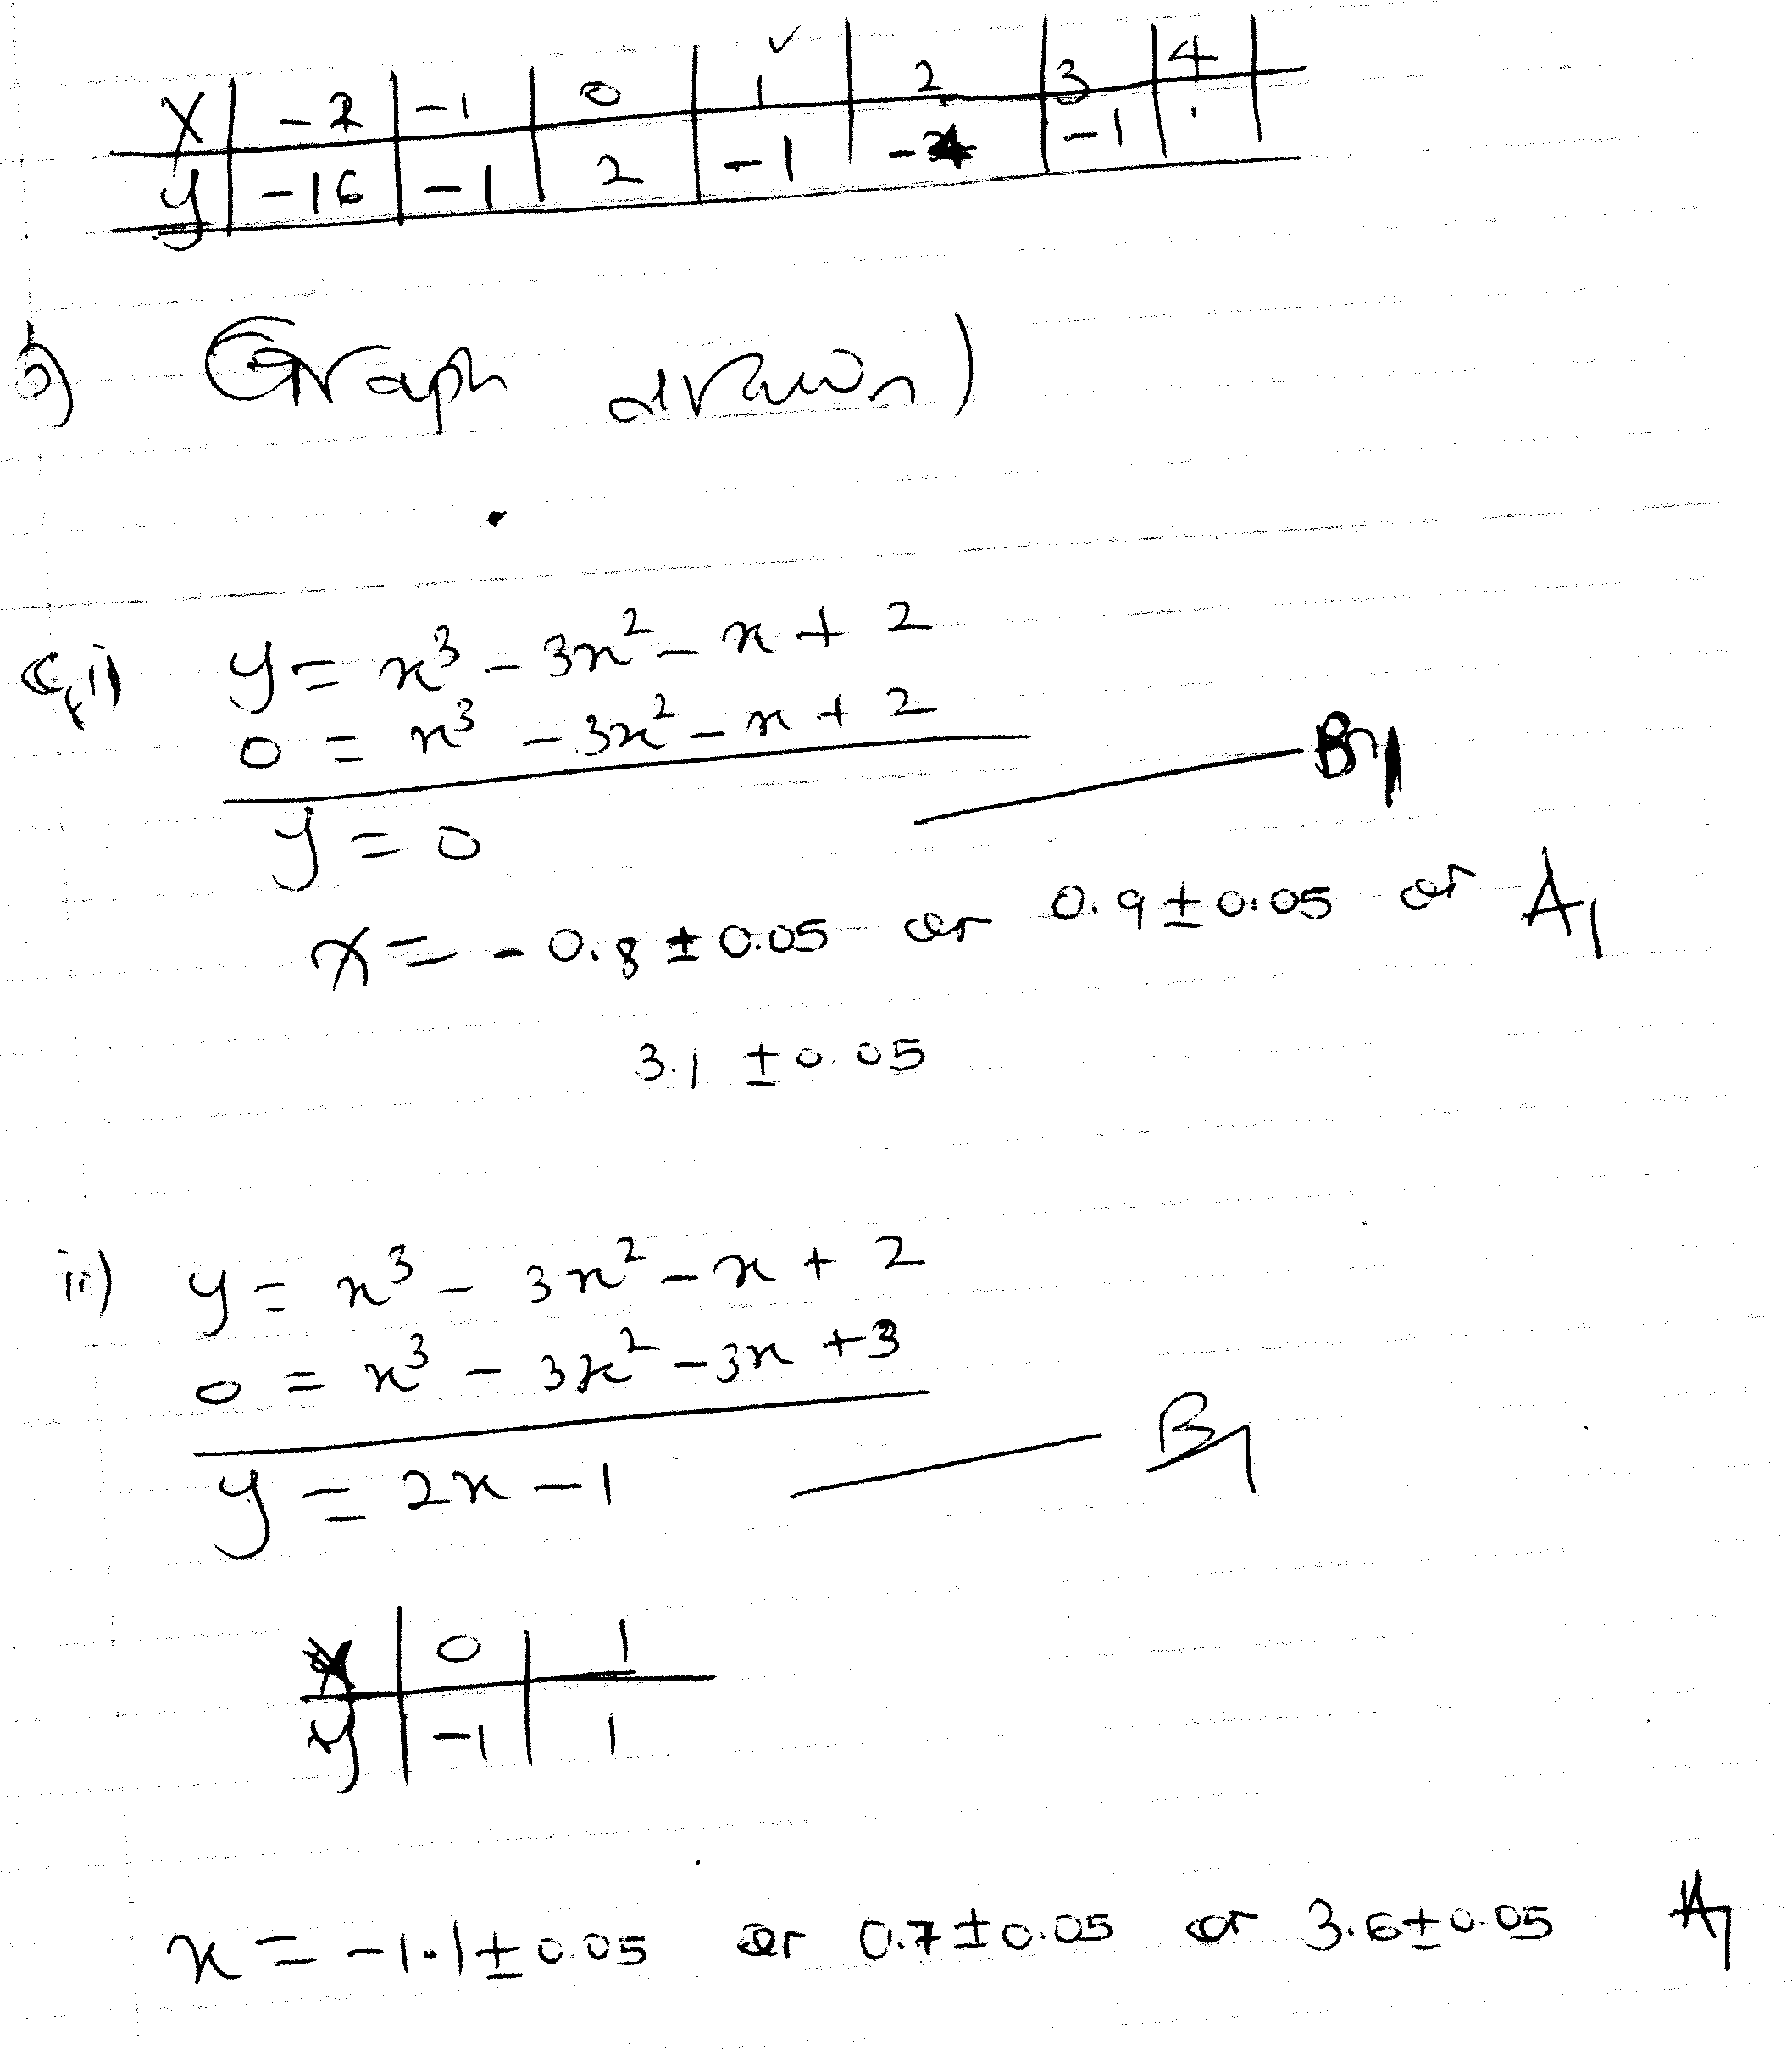 x | -2 | -1 | 0 | 1 ✓ | 2 | 3 | 4
y | -16 | -1 | 2 | -1 | -4 | -1 |
b) Graph drawn)
c, i) y = x³ - 3x² - x + 2
0 = x³ - 3x² - x + 2
y = 0 B1
x = -0.8 ± 0.05 or 0.9 ± 0.05 or A1
3.1 ± 0.05
ii) y = x³ - 3x² - x + 2
0 = x³ - 3x² - 3x + 3
y = 2x - 1 B1
x | 0 | 1
y | -1 | 1
x = -1.1 ± 0.05 or 0.7 ± 0.05 or 3.6 ± 0.05 A1